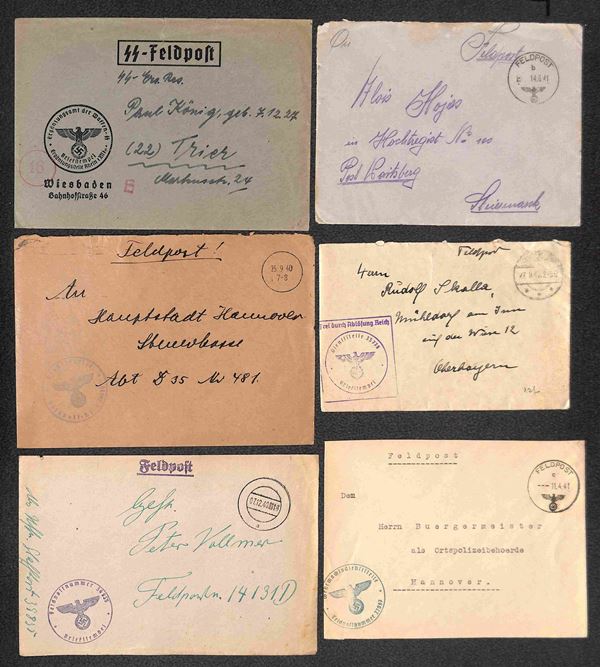 SS-Feldpost
SS-Ers.Res.
Paul König, geb. 7.12.27
(22) Trier
Markusstr. 24
Ergänzungsamt der Waffen-SS
Briefstempel
16
Wiesbaden
Bahnhofstraße 46
E
An
Feldpost
FELDPOST
b
14.4.41
Alois Hojas
in Hochregist No 100
Post Voitsberg
Steiermark
Feldpost!
15.9.40
7-8
An
Hauptstadt Hannover
Steuerkasse
Abt D 35 Nr 481.
Feldpost
27.9.
Herrn
Rudolf Skalla,
Mühldorf am Inn
auf der Wies 12
Oberbayern
Frei durch Ablösung Reich
Dienststelle
Briefstempel
Feldpost
07.12.40
a
Gefr.
Peter Vollmer
Feldpostn. 14131 D
Feldpostnummer
Briefstempel
Feldpost
FELDPOST
11.4.41
Dem
Herrn Buergermeister
als Ortspolizeibehoerde
Hannover.
Feldpostnummer